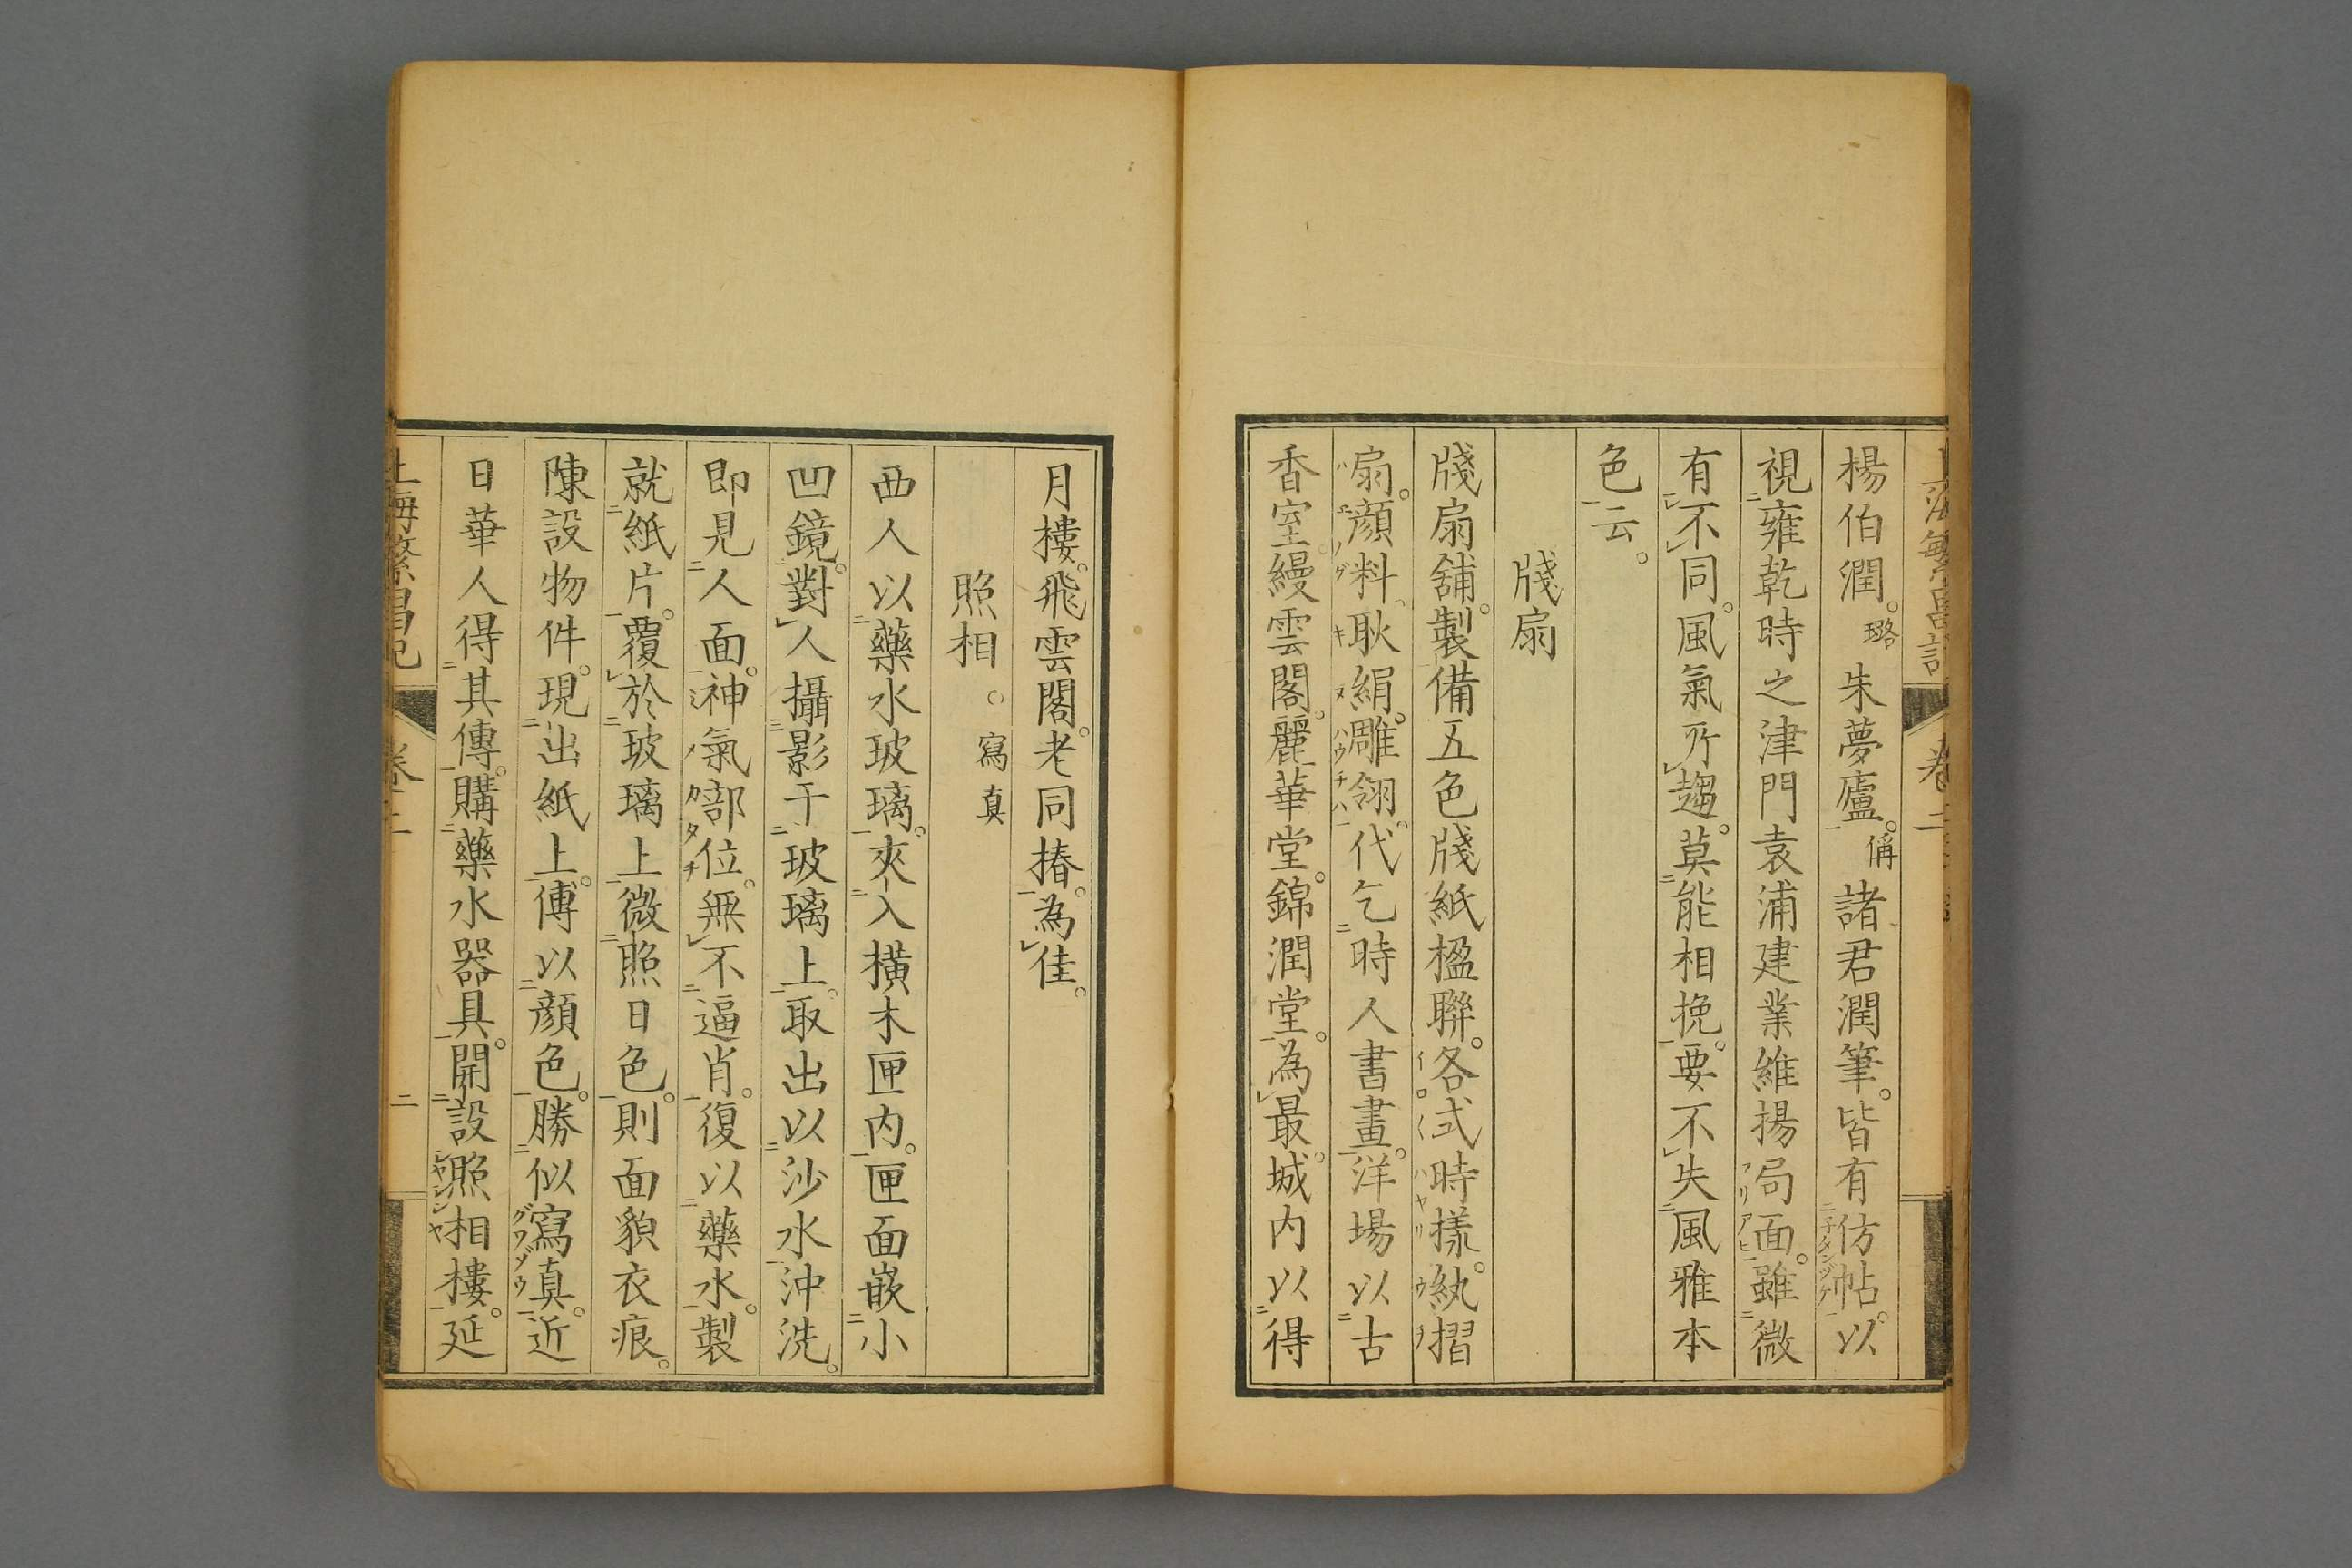 上海繁昌記 卷二
楊伯潤。璐朱夢廬。偁諸君潤筆。皆有仿帖。以
視雍乾時之津門袁浦建業維揚局面。雖微
有不同。風氣所趨。莫能相挽。要不失風雅本
色云。
牋扇
牋扇舖。製備五色牋紙楹聯。各式時樣。紈摺
扇。顔料耿絹。雕翎。代乞時人書畫。洋場以古
香室。縵雲閣。麗華堂。錦潤堂。為最。城内以得
月樓。飛雲閣。老同椿。為佳。
照相。寫真
西人以藥水玻璃。夾入横木匣内。匣面嵌小
凹鏡。對人攝影于玻璃上。取出以沙水沖洗。
即見人面。神氣部位。無不逼肖。復以藥水。製
就紙片。覆於玻璃上微照日色。則面貌衣痕。
陳設物件。現出紙上。傅以顔色。勝似寫真。近
日華人得其傳。購藥水器具。開設照相樓。延
上海繁昌記 卷二 二